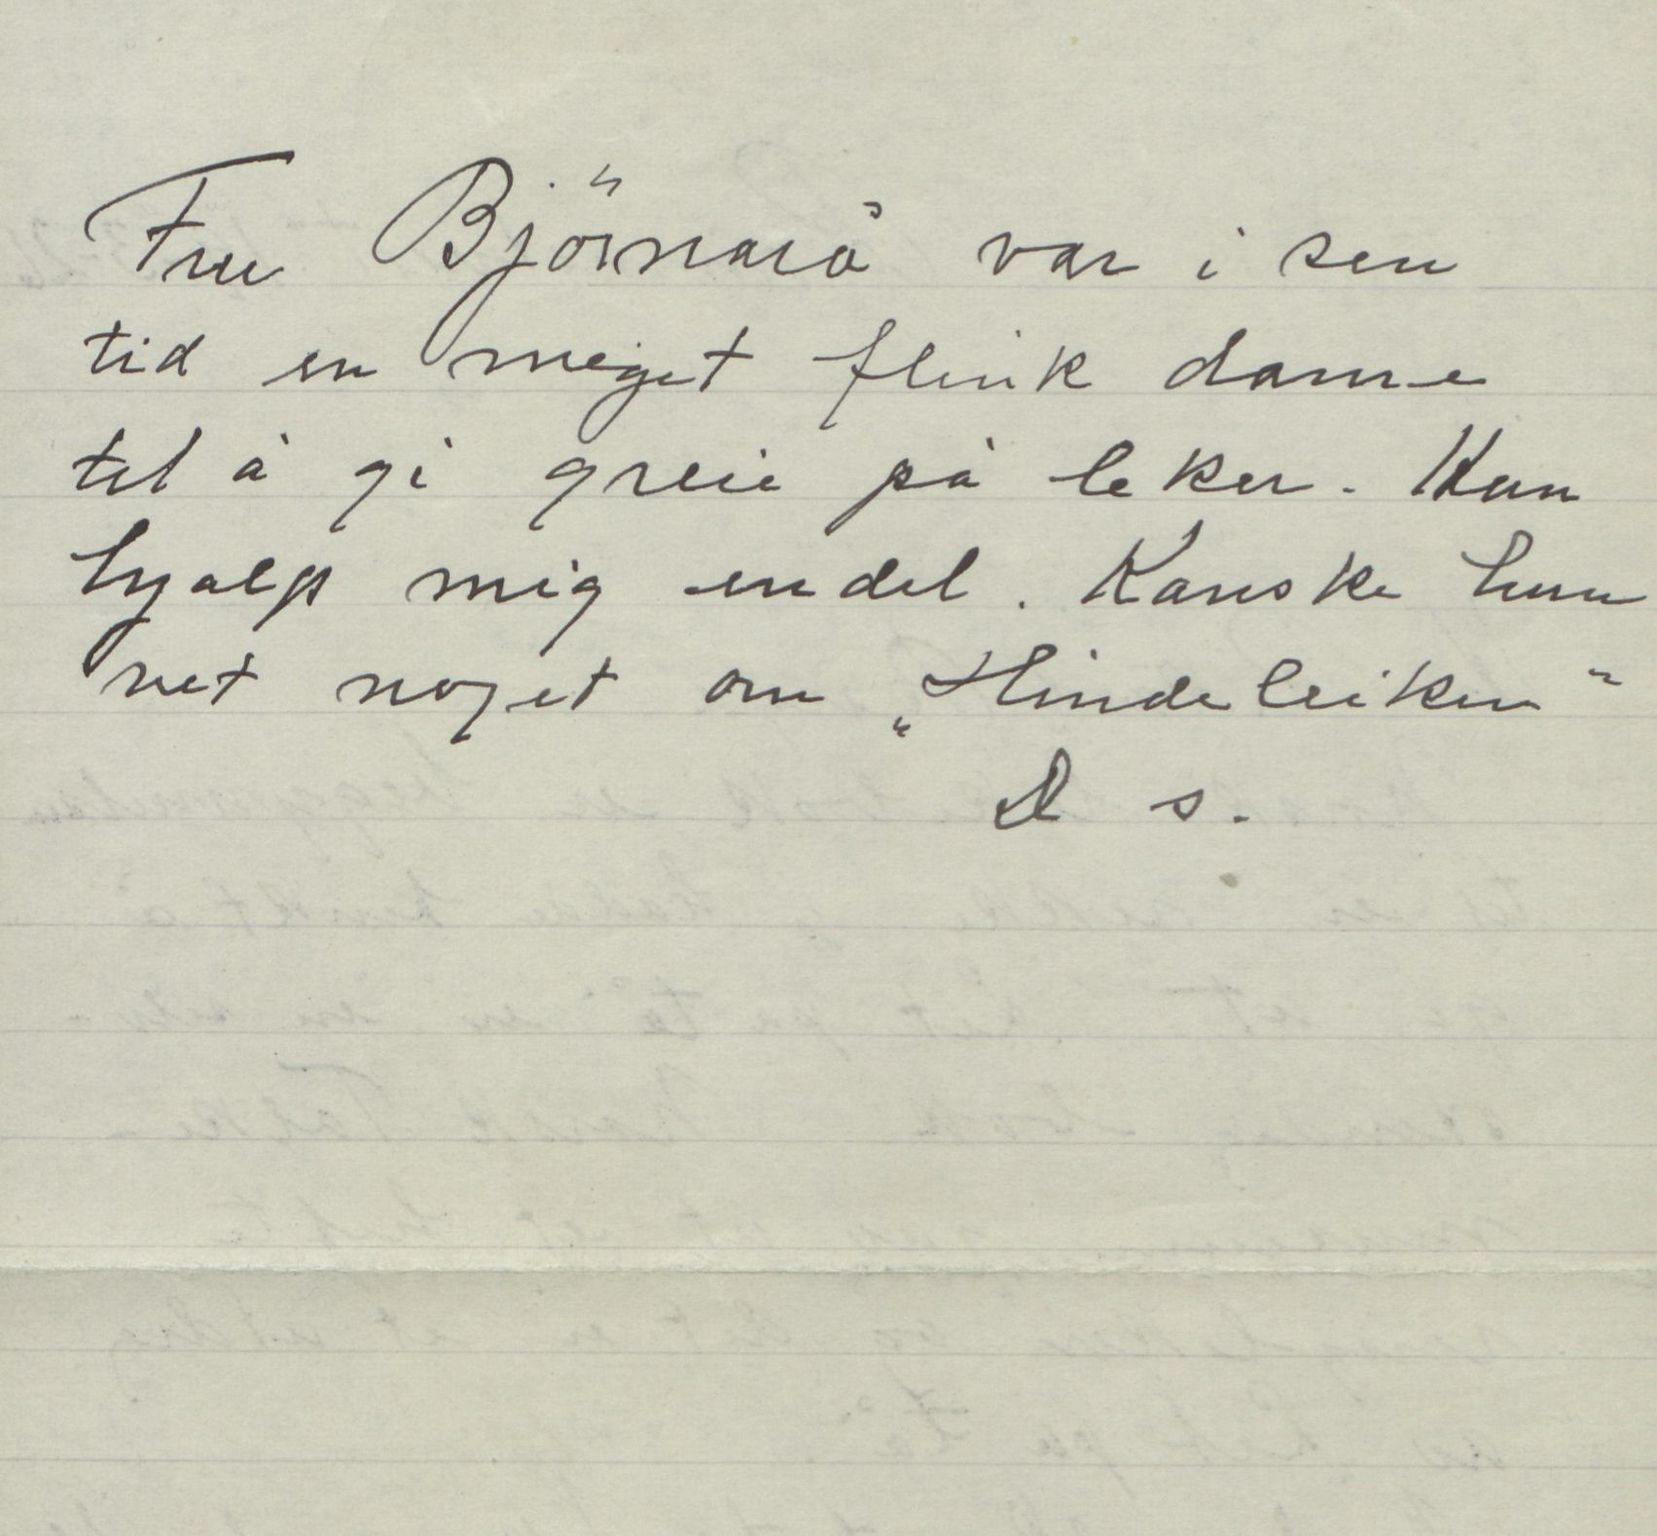 Fru Björnarå var i sin
tid en meget flink dame
til å gi greie på leker. Hun
hjalp mig endel. Kanske hun
vet noget om „Hindeleiken"
D s.